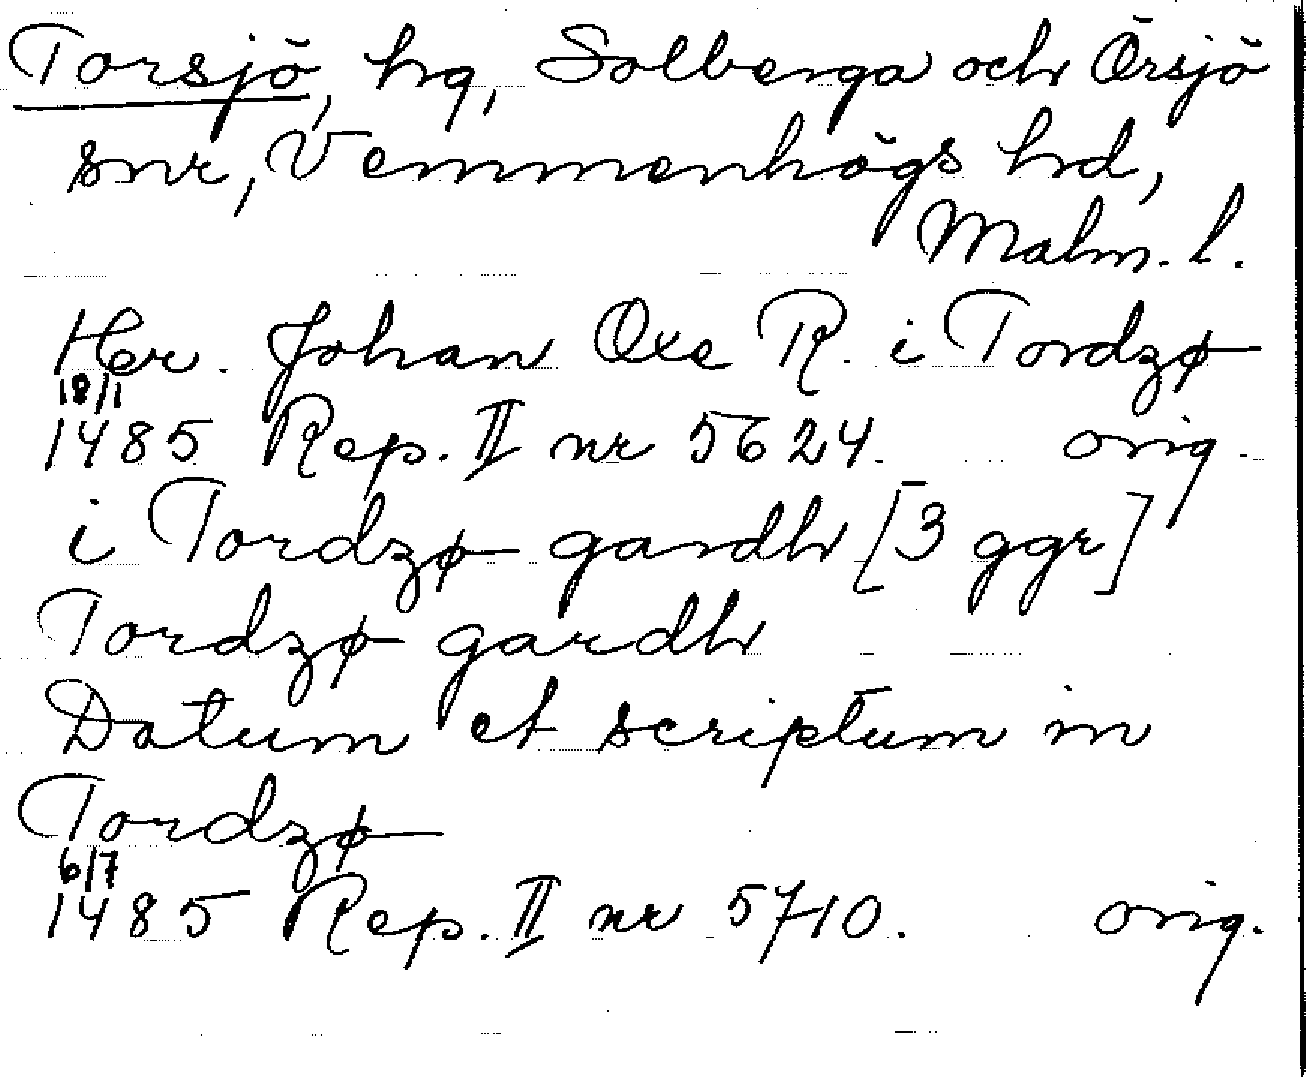 Torsjö, hg, Solberga och Örsjö
snr, Vemmenhögs hd,
Malm. l.
Her. Johan Oxe R. i Tordzø
18/1
1485 Rep. II nr 5624. orig.
i Tordzø gardh [3 ggr]
Tordzø gardh
Datum et scriptum in
Tordzø
6/7
1485 Rep. II nr 5710. orig.